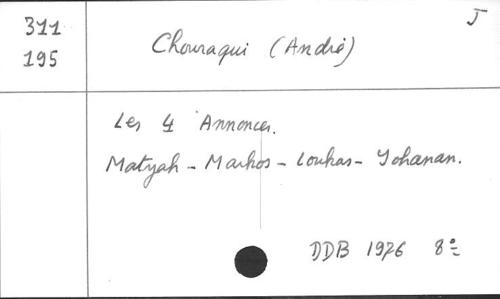 311
195
J
Chouraqui (André)
Les 4 Annonces.
Matyah - Markos - Loukas - Yohanan.
DDB 1976 8º